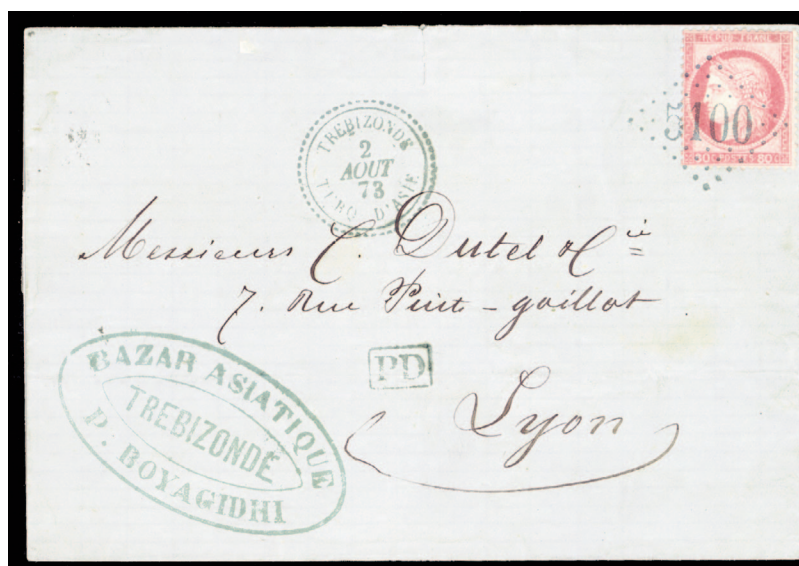 REPUB. FRANC.
5100
80 POSTES 80
TREBIZONDE
2
AOUT
73
TURQ. D'ASIE
Messieurs C. Dutel & Cie
7. Rue Puits-gaillot
PD
Lyon
BAZAR ASIATIQUE
TREBIZONDE
P. BOYAGIDHI